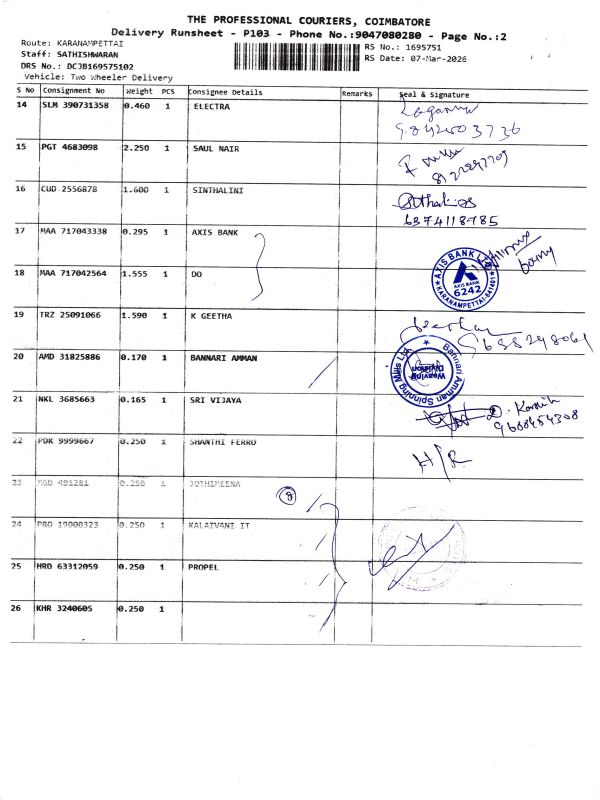 THE PROFESSIONAL COURIERS, COIMBATORE
Delivery Runsheet - P103 - Phone No.:9047080280 - Page No.:2
Route: KARANAMPETTAI
Staff: SATHISHWARAN
DRS No.: DCJB169575102
Vehicle: Two Wheeler Delivery
RS No.: 1695751
RS Date: 07-Mar-2026
S No Consignment No Weight PCS Consignee Details Remarks Seal & Signature
14 SLM 390731358 0.460 1 ELECTRA
15 PGT 4683098 2.250 1 SAUL NAIR
16 CUD 2556878 1.600 1 SINTHALINI
6374118785
17 MAA 717043338 0.295 1 AXIS BANK
18 MAA 717042564 1.555 1 DO
AXIS BANK LTD
AXIS BANK
6242
KARANAMPETTAI-641401
19 TRZ 25091066 1.590 1 K GEETHA
20 AMD 31825886 0.170 1 BANNARI AMMAN
Bannari Amman Spinning Mills Ltd.
Weaving
Division
21 NKL 3685663 0.165 1 SRI VIJAYA
22 PDK 9999667 0.250 1 SHANTHI FERRO
H/R
23 MGD 491281 0.250 1 JOTHIMEENA
24 PRO 19000323 0.250 1 KALAIVANI IT
25 HRD 63312059 0.250 1 PROPEL
26 KHR 3240605 0.250 1